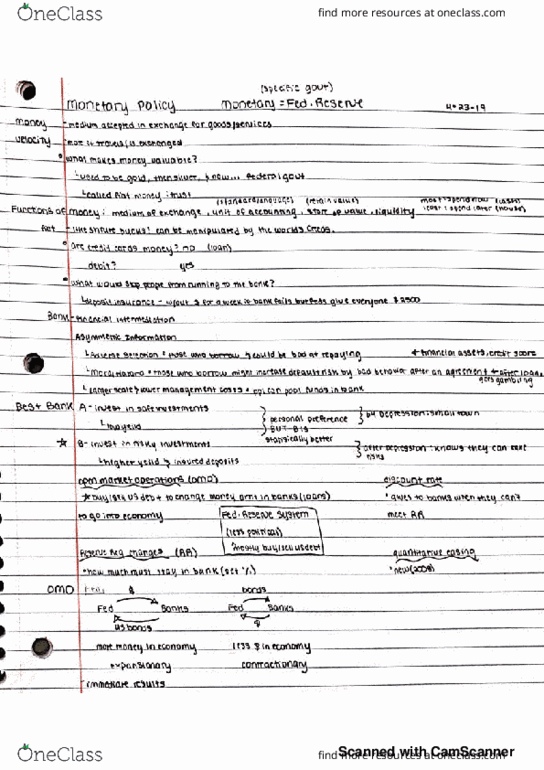 OneClass
find more resources at oneclass.com
(specific govt)
Monetary Policy Monetary = Fed. Reserve 4-23-19
Money - medium accepted in exchange for goods/services
velocity - it travels/is exchanged
• what makes money valuable?
used to be gold, then silver, & now... federal govt
called fiat money: trust
(standard language) (retain value)
Functions of money: medium of exchange, unit of accounting, store of value, liquidity
fiat - can be manipulated by the world's
• are credit cards money? no (loan)
debit? yes
• what would stop people from running to the bank?
deposit insurance - $ for a week if bank fails but feds give everyone
Bank - financial intermediation
Asymmetric Information
Adverse selection • those who borrow $ could be bad at repaying + financial assets, credit score
those who borrow might increase default risk by bad behavior after an agreement + after loan,
goes gambling
larger scale lower management costs • can pool funds in bank
Best Bank A- invest in safe investments personal preference b4 depression: small town
BUT B is
statistically better
B- invest in risky investments after depression: knows they can take
risks
higher yield insured deposits
open market operations (OMO) discount rate
buy/sell US debt to change money amt in banks (loans) • gives to banks when they can't
to go into economy Fed. Reserve System meet RR
(less political)
mostly buy/sell us debt
Reserve Req changes (RR) quantitative easing
• how much must stay in bank (set %) • new (2008)
OMO $ bonds
Fed Banks Fed Banks
us bonds $
more money in economy less $ in economy
expansionary contractionary
immediate results
OneClass
find more resources at oneclass.com
Scanned with CamScanner